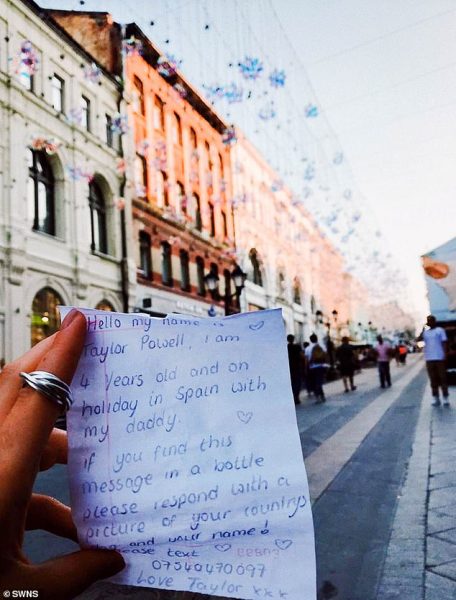 Hello my name is
Taylor Powell, i am
4 years old and on
holiday in Spain with
my daddy.
if you find this
message in a bottle
please respond with a
picture of your countrys
and your name!
Please text
07540470697
Love Taylor xxx
© SWNS